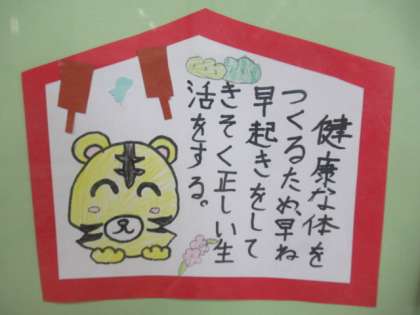 健康な体を
つくるため、早ね
早起きをして
きそく正しい生
活をする。